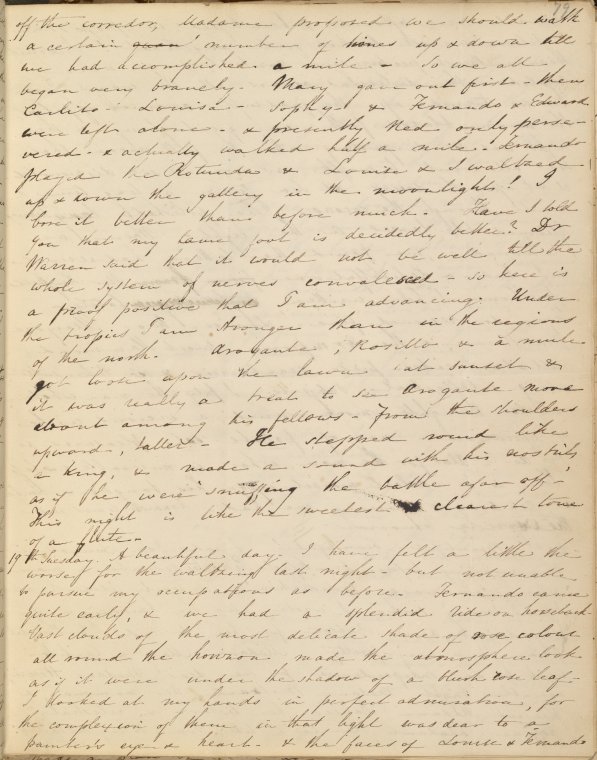 off the corredor, Madame proposed we should walk
a certain number of times up & down till
we had accomplished a mile. - So we all
began very bravely. Mary gave out first - then
Carlito - Louisa - Sophy - & Fernando & Edward
were left alone - & presently Ned only perse-
vered - & actually walked half a mile. Fernando
played the Rotunda & Louisa & I waltzed
up & down the gallery in the moonlight! I
bore it better than before much. Have I told
you that my lame foot is decidedly better? Dr
Warren said that it would not be well till the
whole system of nerves convalesced - so here is
a proof positive that I am advancing. Under
the tropics I am stronger than in the regions
of the north. Arogante, Rosillo & a mule
got loose upon the lawn at sunset &
it was really a treat to see Arogante move
about among his fellows - From the shoulders
upward, taller - He stepped round like
a King, & made a sound with his nostrils
as if he were "snuffing the battle afar off"
This night is like the sweetest clearest tone
of a flute. -
19th Tuesday. A beautiful day. I have felt a little the
worse for the waltzing last night - but not unable
to pursue my occupations as before. Fernando came
quite early, & we had a splendid ride on horseback
Vast clouds of the most delicate shade of rose colour
all round the horizon made the atmosphere look
as if it were under the shadow of a blush rose leaf -
I looked at my hands in perfect admiration, for
the complexion of them in that light was dear to a
painter's eye & heart - & the faces of Louisa & Fernando